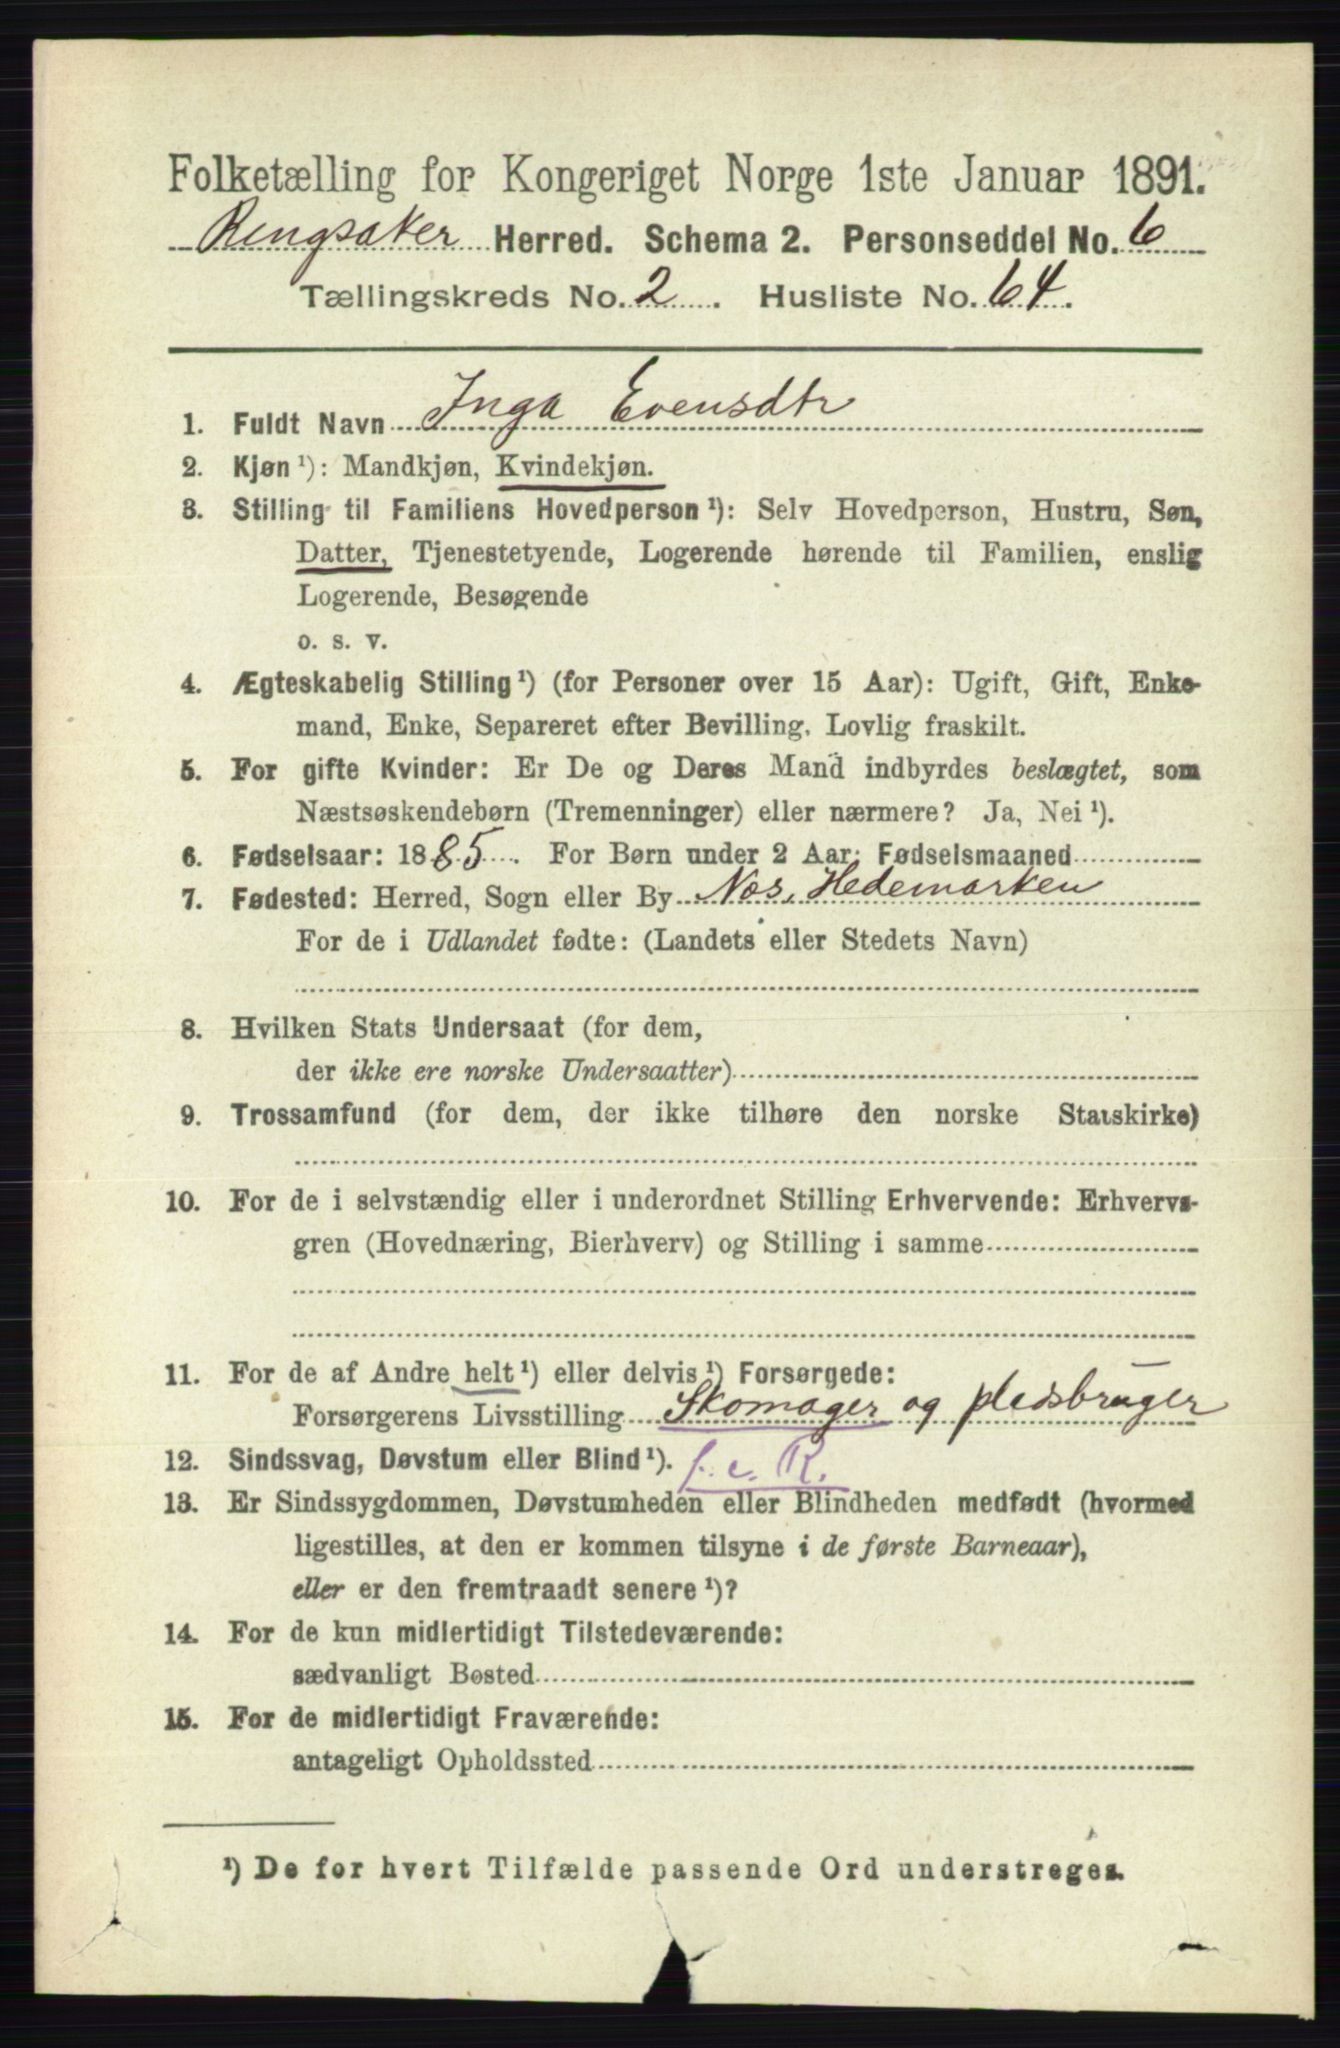 Folketælling for Kongeriget Norge 1ste Januar 1891.
Ringsaker Herred. Schema 2. Personseddel No. 6
Tællingskreds No. 2. Husliste No. 64.
1. Fuldt Navn Inga Evensdtr
2. Kjøn ¹): Mandkjøn, Kvindekjøn.
3. Stilling til Familiens Hovedperson ¹): Selv Hovedperson, Hustru, Søn,
Datter, Tjenestetyende, Logerende hørende til Familien, enslig
Logerende, Besøgende
o. s. v.
4. Ægteskabelig Stilling ¹) (for Personer over 15 Aar): Ugift, Gift, Enke-
mand, Enke, Separeret efter Bevilling, Lovlig fraskilt.
5. For gifte Kvinder: Er De og Deres Mand indbyrdes beslægtet, som
Næstsøskendebørn (Tremenninger) eller nærmere? Ja, Nei ¹).
6. Fødselsaar: 1885. For Børn under 2 Aar: Fødselsmaaned
7. Fødested: Herred, Sogn eller By Næs, Hedemarken
For de i Udlandet fødte: (Landets eller Stedets Navn)
8. Hvilken Stats Undersaat (for dem,
der ikke ere norske Undersaatter)
9. Trossamfund (for dem, der ikke tilhøre den norske Statskirke)
10. For de i selvstændig eller i underordnet Stilling Erhvervende: Erhvervs-
gren (Hovednæring, Bierhverv) og Stilling i samme
11. For de af Andre helt ¹) eller delvis ¹) Forsørgede:
Forsørgerens Livsstilling Skomager og pladsbruger
12. Sindssvag, Døvstum eller Blind ¹).
13. Er Sindssygdommen, Døvstumheden eller Blindheden medfødt (hvormed
ligestilles, at den er kommen tilsyne i de første Barneaar),
eller er den fremtraadt senere ¹)?
14. For de kun midlertidigt Tilstedeværende:
sædvanligt Bosted
15. For de midlertidigt Fraværende:
antageligt Opholdssted
¹) De for hvert Tilfælde passende Ord understreges.